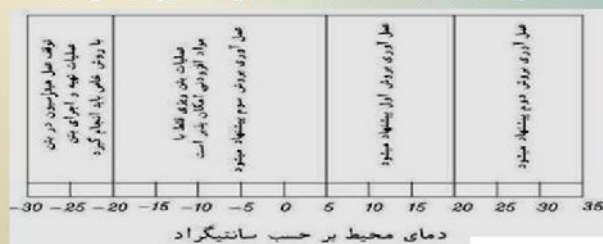 توقف عمل هیدراسیون در بتن
عملیات تهیه و اجرای بتن
با روش خاص باید انجام گیرد
عملیات بتن ریزی فقط با
مواد افزودنی امکان پذیر است
عمل آوری بروش سوم پیشنهاد میشود
عمل آوری بروش اول پیشنهاد میشود
عمل آوری بروش دوم پیشنهاد میشود
-30 -25 -20 -15 -10 -5 0 5 10 15 20 25 30 35
دمای محیط بر حسب سانتیگراد